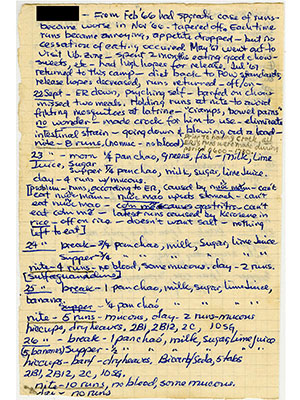 - From Feb '66 had sporadic case of runs -
became worse in Nov '66 - tapered off. Each time
runs became annoying, appetite dropped. Just no
cessation of eating occurred. May '67 went out to
visit Lib. zone - spent 2 months eating good chow -
sweets, etc - had high hopes for release, Jul '67
returned to this camp - diet back to POW standards
release hopes decreased, runs returned - off/on
22 Sept - ER down, psyching self - barfed on chow
missed two meals. Holding runs at nite to avoid
fighting mosquitoes at latrine - "cramps, bowel pains"
no worries - made crock for him to use - eliminate
intestinal strain - going down & blowing out a load -
nite - 8 runs (no muc - no blood)
Prior to having crock, all
ER's runs were made during
23 - morn ¼ pan chao, greens, fish - milk, lime
juice, sugar
supper ¼ pan chao, milk, sugar, lime juice.
day - 4 runs w/mucous
[problem - runs, according to ER, caused by nuoc mam - can't
eat nuoc mam - nuoc mao upsets stomach - can't
eat nuoc mao - com me causes gastritis - can't
eat com me - latest runs caused by kerosene in
rice - off of rice - doesn't want salt - nothing
left to eat]
24 " break - ¾ pan chao, milk, sugar, lime juice
supper ¾ " " " " "
nite - 4 runs - no blood, some mucous. day - 2 runs.
[Sulfaguanidine]
25 " break - 1 pan chao, milk, sugar, lime juice,
banana.
supper - ¼ pan chao, " " " "
nite - 5 runs - mucous, day - 2 runs - mucous
hiccups, dry heaves, 2B1, 2B12, 2C, 10SG,
26 " - break - 1 pan chao, milk, sugar, lime juice
(5 bananas) supper - ½ " " " " "
hiccups - barf - dry heaves, Bicarb/soda, 5 tabs
2B1, 2B12, 2C, 10SG.
nite - 10 runs, no blood, some mucous.
no runs